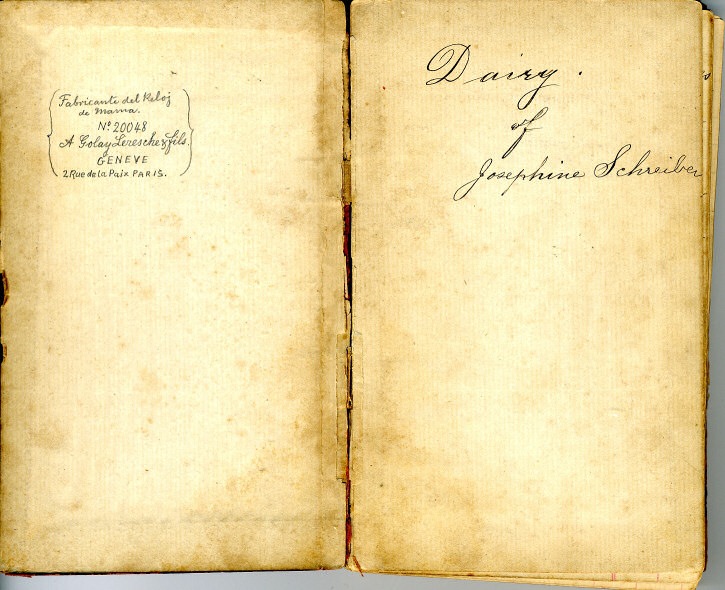 Fabricante del Reloj
de Mama.
Nº 20048
A Golay Leresche & fils.
GENEVE
2 Rue de la Paix PARIS.
Dairy.
of
Josephine Schreiber